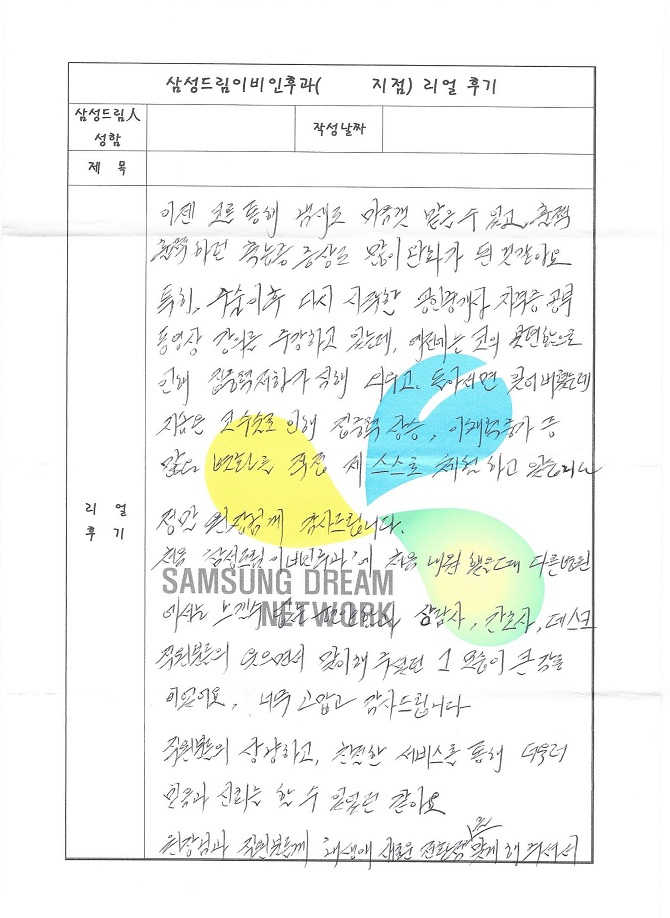 삼성드림이비인후과(        지점) 리얼 후기
삼성드림人
성함
작성날짜
제 목
리 얼
후 기
이젠 코를 통해 냄새도 마음껏 맡을 수 있고, 훌쩍
훌쩍하던 축농증 증상도 많이 완화가 된 것같아요
특히, 수술이후 다시 시작한 공인중개사 자격증 공부
동영상 강의를 수강하고 있는데, 예전에는 코의 불편함으로
인해 집중력저하가 심해 외우고, 돌아서면 잊어버렸는데
지금은 코수술로 인해 집중력 상승, 이해력증가 등
많은 변화를 직접 제 스스로 체험하고 있으니
정말 원장님께 감사드립니다.
처음 '삼성드림이비인후과'에 처음 내원했을때 다른병원
에서는 느낄수 없는 상담사, 간호사, 데스크
직원분들의 웃으면서 맞이해 주셨던 그 모습이 큰 감동
이었어요, 너무 고맙고 감사드립니다
직원분들의 상냥하고, 친절한 서비스를 통해 더욱더
믿음과 신뢰를 할 수 있었던 같아요
원장님과 직원분들께 제생애 새로운 전환점을 맞게 해 주셔서
SAMSUNG DREAM
NETWORK